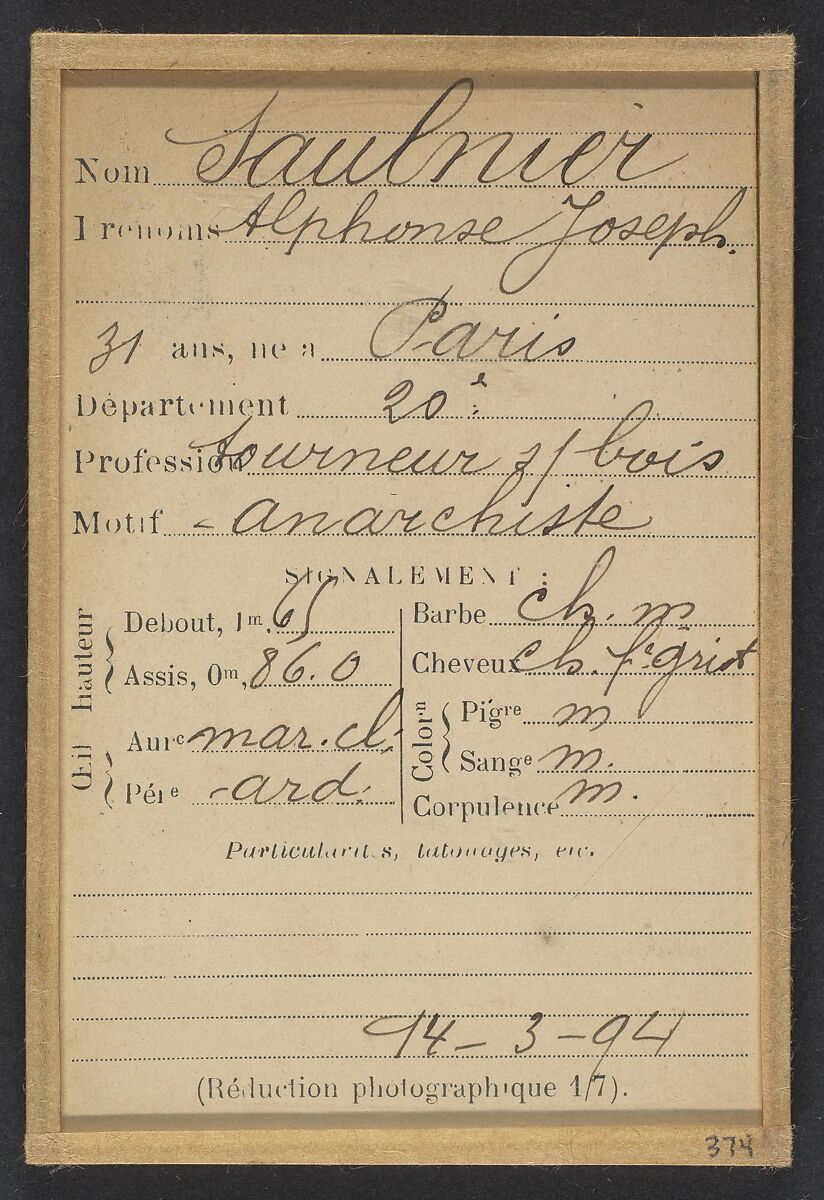 Nom Saulnier
Prénoms Alphonse Joseph.
31 ans, né à Paris
Département 20e
Profession tourneur s/ bois
Motif - anarchiste
SIGNALEMENT :
Œil hauteur
Debout, 1m, 65
Assis, 0m, 86.0
Aure mar. cl.
Pére - ard.
Barbe ch. m
Cheveux ch. gris
Colorn
Pigre m
Sange m.
Corpulence m.
Particularités, tatouages, etc.
14 - 3 - 94
(Réduction photographique 1/7).
374